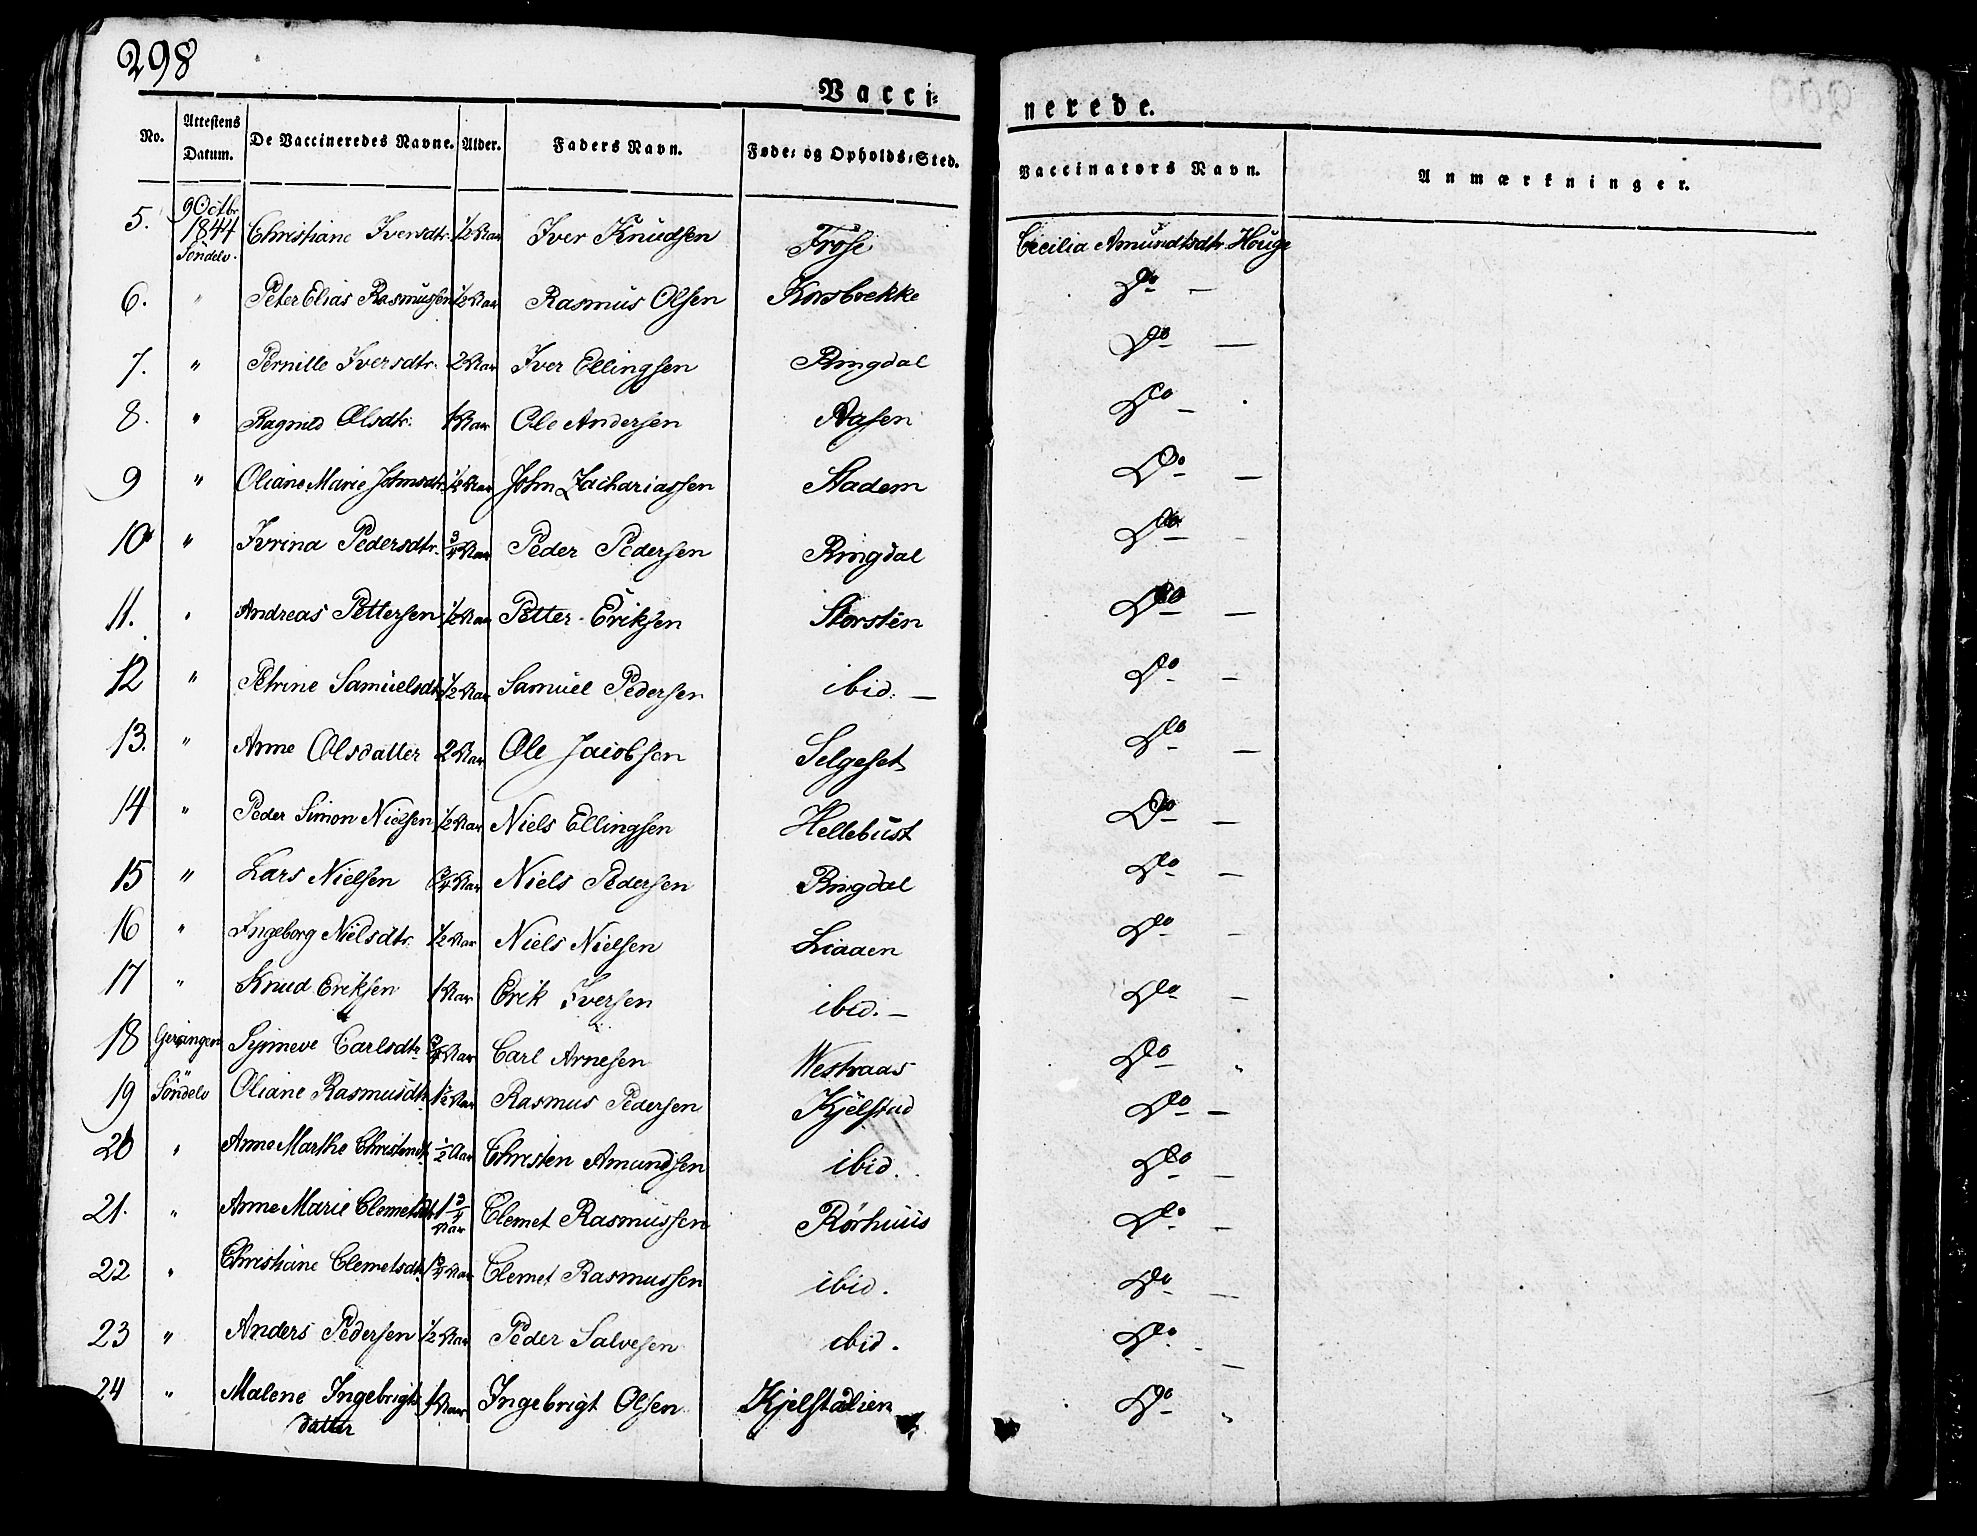 298
Vacci=
nerede.
No. Attestens Datum. De Vaccineredes Navne. Alder. Faders Navn. Føde= og Opholds=Sted. Vaccinators Navn. Anmærkninger.
5. 9 Octbr. 1844 Söndelv. Christiane Iversdtr. 1/2 Aar Iver Knudsen Frøse Cecilia Amundtsdtr. Houge
6. " Peter Elias Rasmussen 1/2 Aar Rasmus Olsen Korsbrekke Do —
7. " Pernille Iversdtr. 2 Aar Iver Ellingsen Ringdal Do —
8. " Ragnild Olsdtr. 1 Aar Ole Andersen Aasen Do —
9 " Oliane Marie Johnsdtr. 1/2 Aar John Zachariassen Stadem Do —
10 " Ivrina Pedersdtr. 3/4 Aar Peder Pedersen Ringdal Do —
11. " Andreas Pettersen 1/2 Aar Petter Eriksen Storsten Do —
12 " Petrine Samuelsdtr. 1/2 Aar Samuel Pedersen ibid. — Do —
13. " Anne Olsdatter 2 Aar Ole Jacobsen Selgeset Do —
14 " Peder Simon Nielsen 1/2 Aar Niels Ellingsen Hellebust Do —
15 " Lars Nielsen 3/4 Aar Niels Pedersen Ringdal Do —
16 " Ingeborg Nielsdtr. 1/2 Aar Niels Nielsen Liaaen Do —
17 " Knud Eriksen 1 Aar Erik Iversen ibid. — Do —
18 Gerangen Synneve Carlsdtr. 3/4 Aar Carl Arnesen Westraas Do "
19 Söndelv Oliane Rasmusdtr. 1 1/2 Aar Rasmus Pedersen Kjelstad Do —
20 " Anne Marthe Christensdt. 1/2 Aar Christen Amundsen ibid. Do —
21. " Anne Marie Clemetsdt. 1 3/4 Aar Clemet Rasmussen Rørhuus Do —
22 " Christiane Clemetsdtr. Aar Clemet Rasmussen ibid. Do —
23 " Anders Pedersen 1/2 Aar Peder Salvesen ibid. Do —
24 " Malene Ingebrigts 1 Aar Ingebrigt Olsen Kjelstadlien Do "
datter